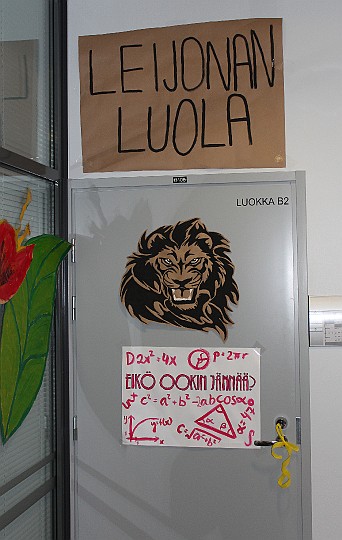 LEIJONAN
LUOLA
LUOKKA B2
D2x² = 4x
P = 2πr
EIKÖ OOKIN JÄNNÄÄ?
c² = a² + b² - 2abcosα
y
y = f(x)
x
α
β